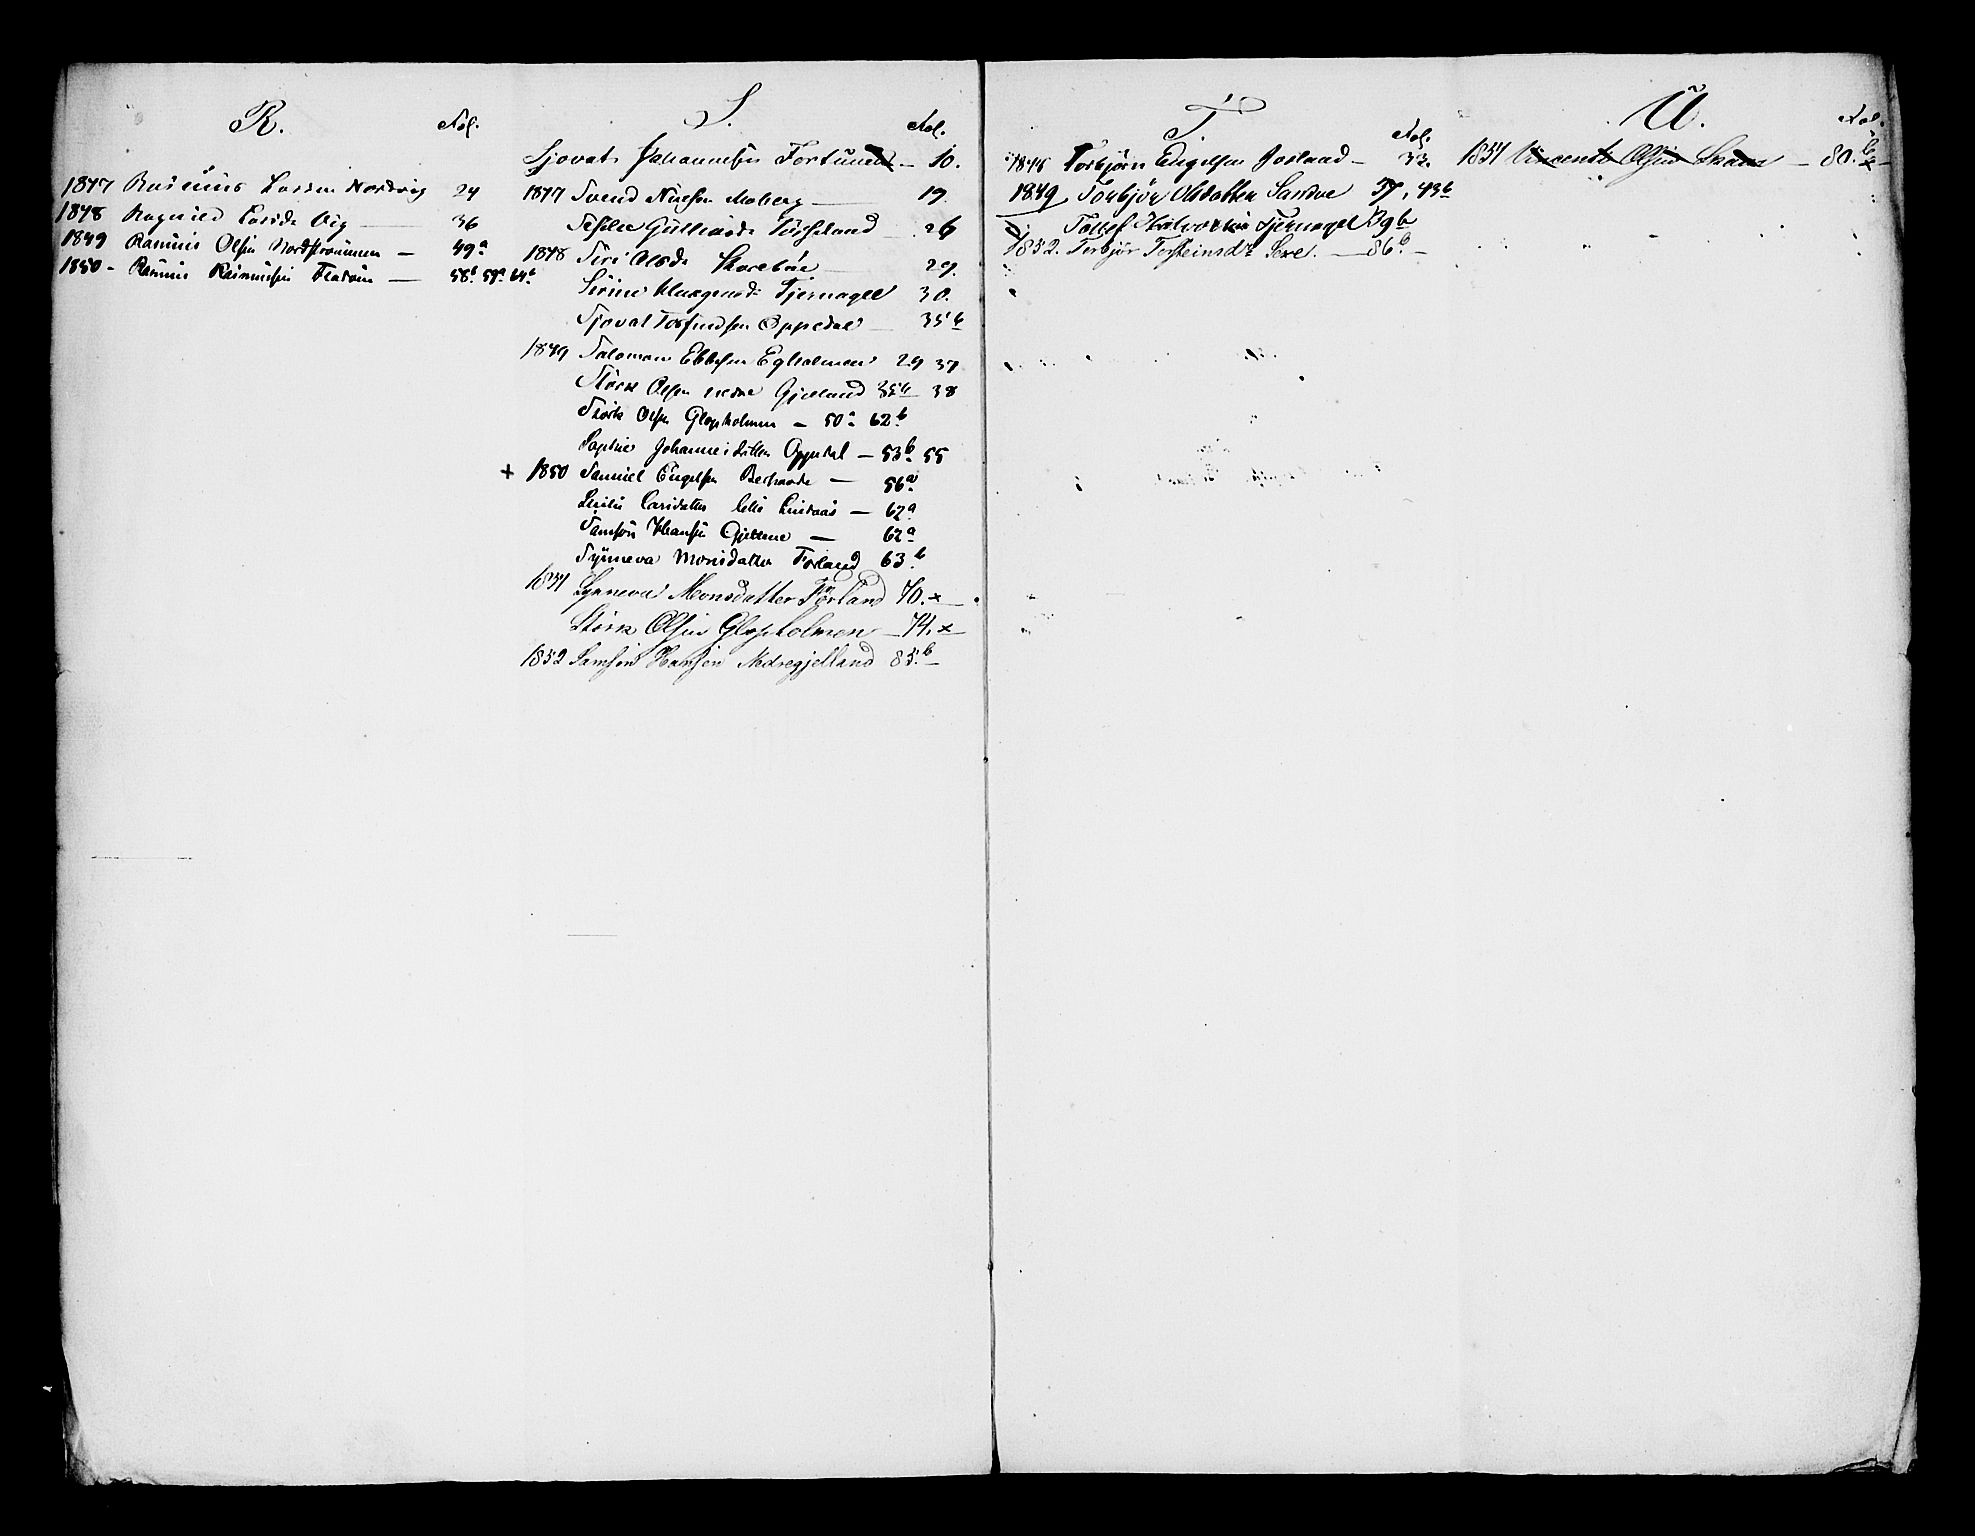 R. Fol.
1847 Rasmus Larsen Nordvig 24
1848 Ragnild Larsdr Vig 36
1849 Rasmus Olsen Nordstrømmen — 49a
1850 - Rasmus Rasmussen Flatøen — 58b 59a 64b
S. Fol.
Sjovat Johannesen Fortuneck — 10.
1847 Svend Nielsen Moberg — 19.
Guttormsdr 26
1848 Siri Olsdr Skorebøe 29.
Sirine Magnusd: Tjernagel 30.
Sjovat Torfindsen Oppedal 35b
1849 Salomon Ebbesen Egholmen 29 37
Størk Olsen nedre Gjelland 35b 38
Størk Olsen Glopholmen — 50a 62b
Sophie Johannesdatter Oppedal — 53b 55
+ 1850 Samuel Engelsen — 56a
Larsdatter lille Lindaas — 62a
Samson Hansen Gjellene — 62a
Synneva Monsdatter Forland 63b
1851 Synneva Monsdatter Förland 70. x
Størk Olsen Glopholmen — 74. x
1852 Samson Hansen Nedregjelland 85.b —
T. Fol.
1848 Torbjørn Engelsen Josland — 33.
1849 Torbjør Olsdatter Sandve 37, 43b
Tollef Halvorsen Tjernagel 39b
1852. Torbjør Torsteinsdr Sexe. — 86b —
U. Fol.
1851 Vincents Olsen Skaar — 80.b x